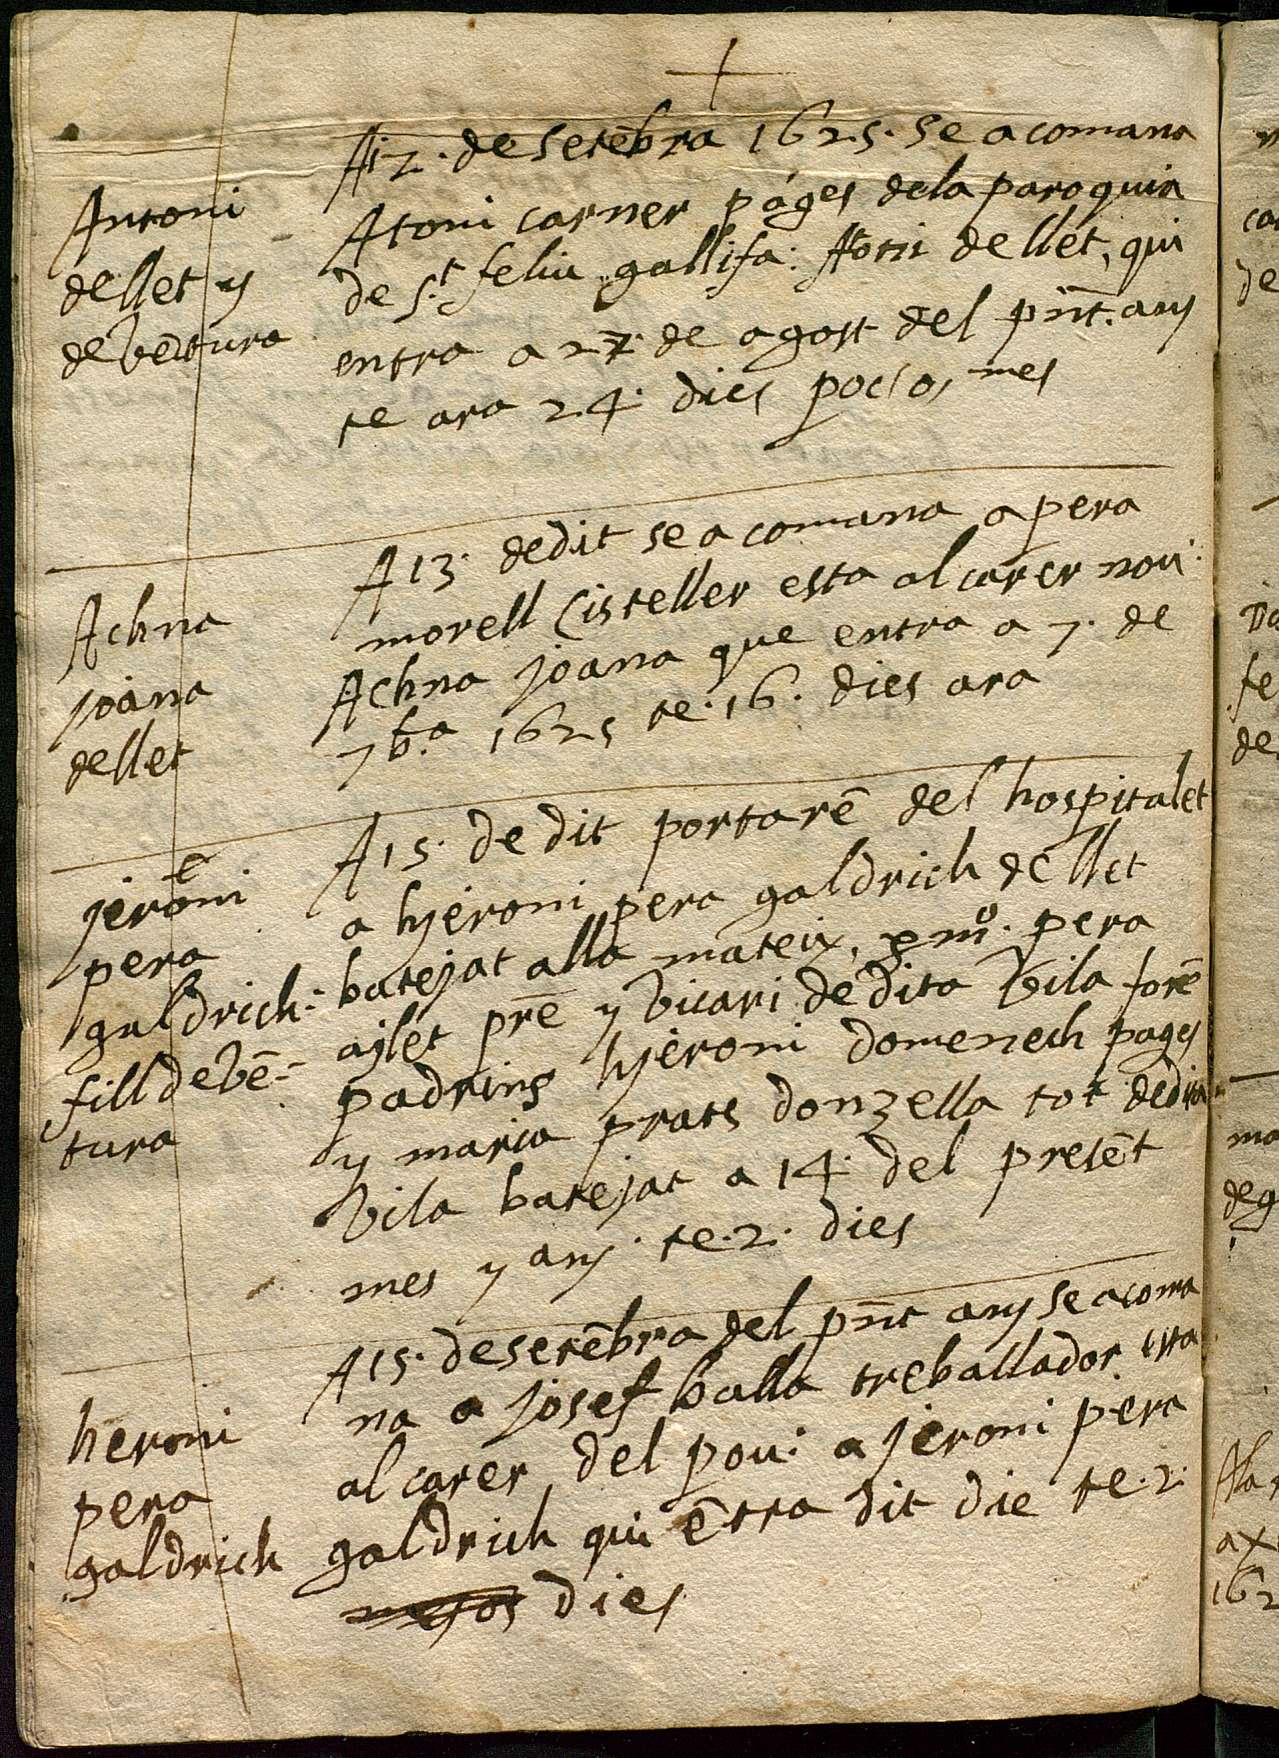 Antoni
de llet y
de Ventura
A 12. de setēbra 1625. se acomana
Atoni carner páges dela paroquia
de s.t feliu gallifa: Atōni de llet, qui
entra a 27. de agost del pn̄t. any
te ara 24. dies poc so, mes
Achna
joana
de llet
A 13. dedit se acomana a pera
morell Cisteller esta al carer nou.
Achna joana que entra a 7. de
7b.a 1625 te. 16. dies ara
jerōni
pera
galdrich-
fill de Vē-
tura
A 15. de dit portarē del hospitalet
a hjeroni pera galdrich de llet
batejat alla mateix, p mº. pera
ajlet prē y Vicari de dita Vila forē
padrins hjeroni domenech pages
y maria prats donzella tot dedita
Vila batejat a 14. del presēt
mes y any. te. 2. dies
heroni
pera
galdrich
A 15. de setēbra del pn̄t any se acoma
na a josef balla treballador esta
al carer del pou: a jeroni pera
galdrich qui ētra dit die te. 2.
mesos dies